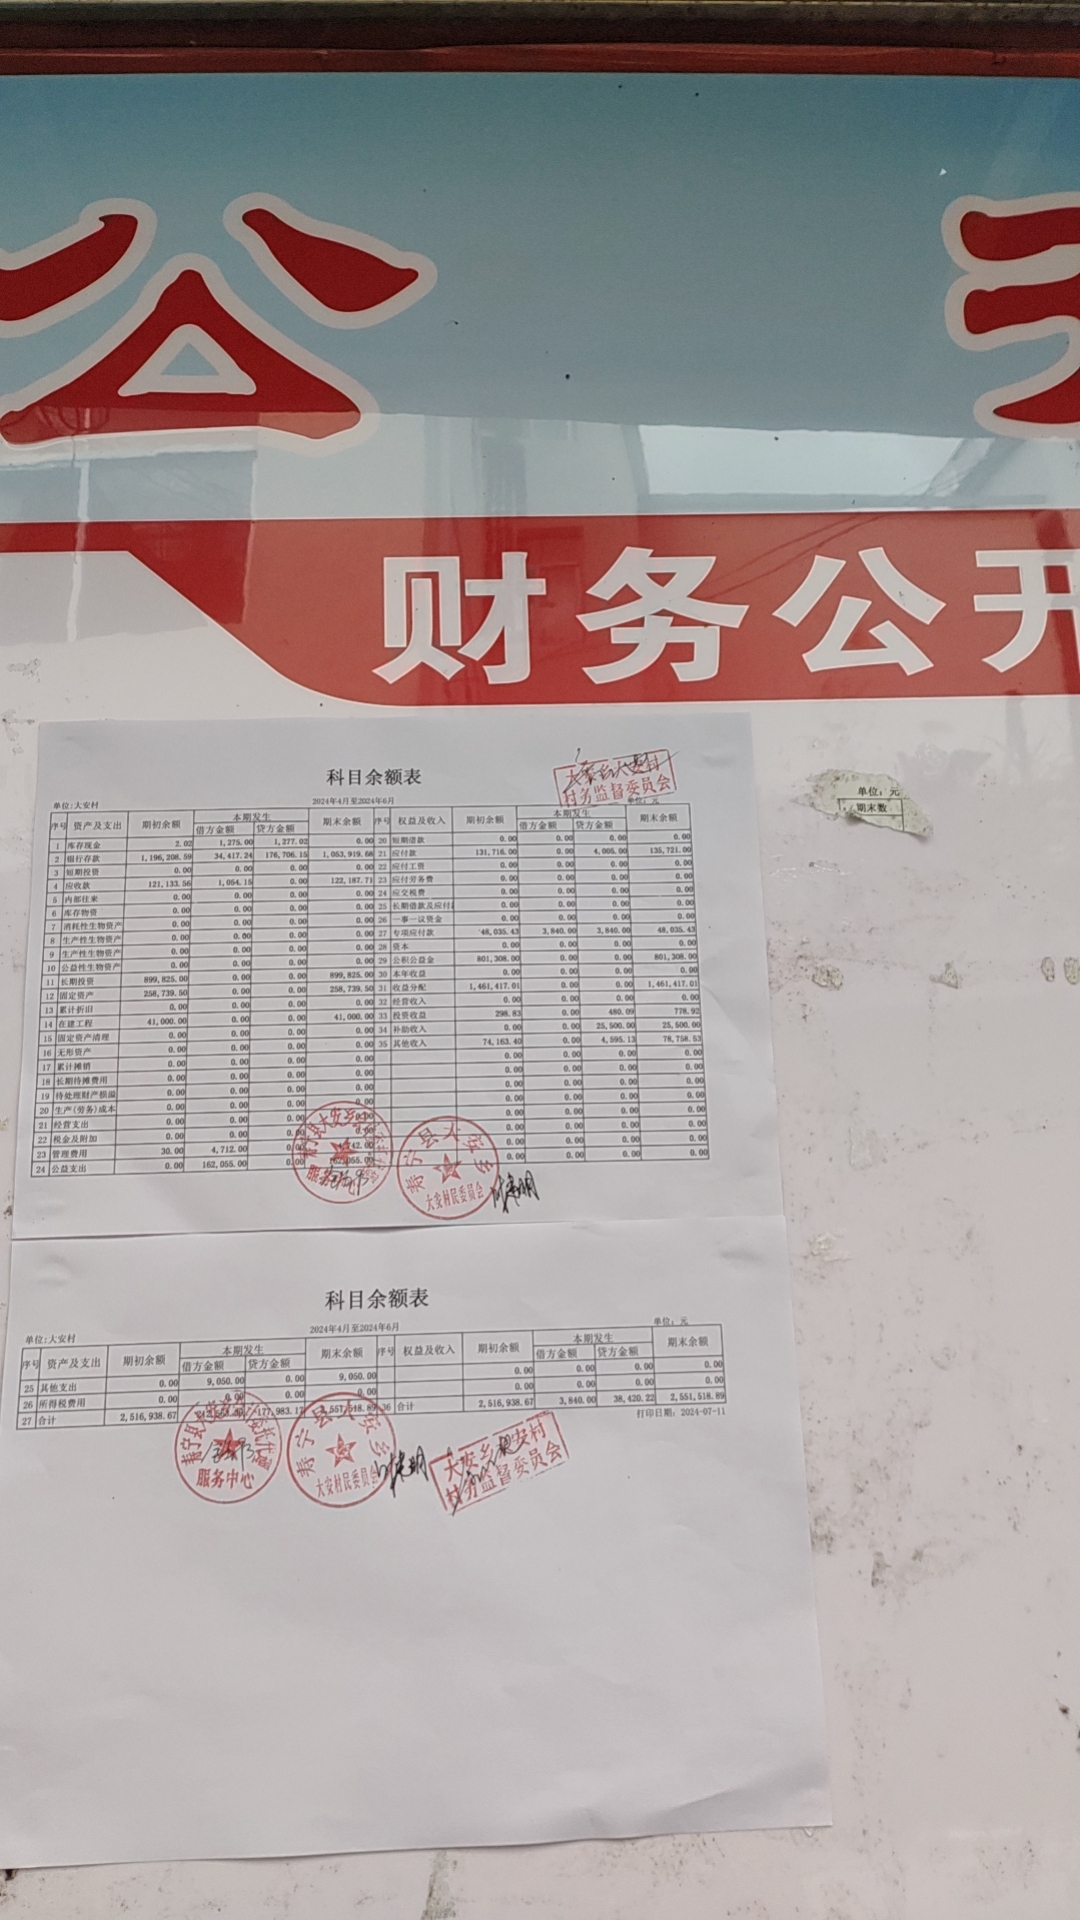 公 开
财务公开
科目余额表
大安乡大安村
村务监督委员会
单位:大安村 2024年4月至2024年6月 单位: 元
序号 资产及支出 期初余额 本期发生 期末余额 序号 权益及收入 期初余额 本期发生 期末余额
借方金额 贷方金额 借方金额 贷方金额
1 库存现金 2.02 1,275.00 1,277.02 0.00 20 短期借款 0.00 0.00 0.00 0.00
2 银行存款 1,196,208.59 34,417.24 176,706.15 1,053,919.68 21 应付款 131,716.00 0.00 4,005.00 135,721.00
3 短期投资 0.00 0.00 0.00 0.00 22 应付工资 0.00 0.00 0.00 0.00
4 应收款 121,133.56 1,054.15 0.00 122,187.71 23 应付劳务费 0.00 0.00 0.00 0.00
5 内部往来 0.00 0.00 0.00 0.00 24 应交税费 0.00 0.00 0.00 0.00
6 库存物资 0.00 0.00 0.00 0.00 25 长期借款及应付 0.00 0.00 0.00 0.00
7 消耗性生物资产 0.00 0.00 0.00 0.00 26 一事一议资金 0.00 0.00 0.00 0.00
8 生产性生物资产 0.00 0.00 0.00 0.00 27 专项应付款 48,035.43 3,840.00 3,840.00 48,035.43
9 生产性生物资产 0.00 0.00 0.00 0.00 28 资本 0.00 0.00 0.00 0.00
10 公益性生物资产 0.00 0.00 0.00 0.00 29 公积公益金 801,308.00 0.00 0.00 801,308.00
11 长期投资 899,825.00 0.00 0.00 899,825.00 30 本年收益 0.00 0.00 0.00 0.00
12 固定资产 258,739.50 0.00 0.00 258,739.50 31 收益分配 1,461,417.01 0.00 0.00 1,461,417.01
13 累计折旧 0.00 0.00 0.00 0.00 32 经营收入 0.00 0.00 0.00 0.00
14 在建工程 41,000.00 0.00 0.00 41,000.00 33 投资收益 298.83 0.00 480.09 778.92
15 固定资产清理 0.00 0.00 0.00 0.00 34 补助收入 0.00 0.00 25,500.00 25,500.00
16 无形资产 0.00 0.00 0.00 0.00 35 其他收入 74,163.40 0.00 4,595.13 78,758.53
17 累计摊销 0.00 0.00 0.00 0.00 0.00 0.00 0.00 0.00
18 长期待摊费用 0.00 0.00 0.00 0.00 0.00 0.00 0.00 0.00
19 待处理财产损溢 0.00 0.00 0.00 0.00 0.00 0.00 0.00 0.00
20 生产(劳务)成本 0.00 0.00 0.00 0.00 0.00 0.00 0.00
21 经营支出 0.00 0.00 0.00 0.00 0.00 0.00 0.00
22 税金及附加 0.00 0.00 0.00 0.00 0.00 0.00 0.00
23 管理费用 30.00 4,712.00 0.00 0.00 0.00 0.00 0.00
24 公益支出 0.00 162,055.00 0.00 0.00 0.00 0.00 0.00
寿宁县大安乡
大安村民委员会
科目余额表
单位:大安村 2024年4月至2024年6月 单位: 元
序号 资产及支出 期初余额 本期发生 期末余额 序号 权益及收入 期初余额 本期发生 期末余额
借方金额 贷方金额 借方金额 贷方金额
25 其他支出 0.00 9,050.00 0.00 9,050.00 0.00 0.00 0.00 0.00
26 所得税费用 0.00 0.00 0.00 0.00 0.00 0.00 0.00 0.00
27 合计 2,516,938.67 177,983.17 36 合计 2,516,938.67 3,840.00 38,420.22 2,551,518.89
打印日期: 2024-07-11
服务中心
寿宁县大安乡
大安村民委员会
大安乡大安村
村务监督委员会
单位: 元
期末数